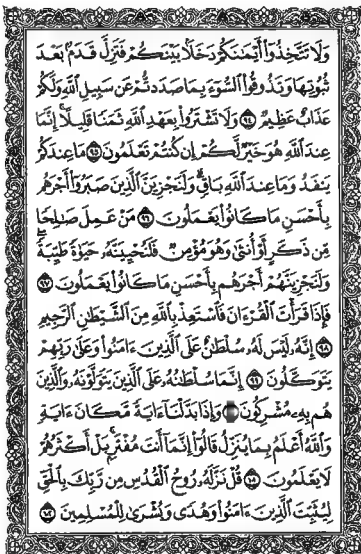 وَلَا تَتَّخِذُوٓا۟ أَيْمَـٰنَكُمْ دَخَلًۢا بَيْنَكُمْ فَتَزِلَّ قَدَمٌۢ بَعْدَ
ثُبُوتِهَا وَتَذُوقُوا۟ ٱلسُّوٓءَ بِمَا صَدَدتُّمْ عَن سَبِيلِ ٱللَّهِ وَلَكُمْ
عَذَابٌ عَظِيمٌ ٩٤ وَلَا تَشْتَرُوا۟ بِعَهْدِ ٱللَّهِ ثَمَنًا قَلِيلًا ۚ إِنَّمَا
عِندَ ٱللَّهِ هُوَ خَيْرٌ لَّكُمْ إِن كُنتُمْ تَعْلَمُونَ ٩٥ مَا عِندَكُمْ
يَنفَدُ ۖ وَمَا عِندَ ٱللَّهِ بَاقٍ ۗ وَلَنَجْزِيَنَّ ٱلَّذِينَ صَبَرُوٓا۟ أَجْرَهُم
بِأَحْسَنِ مَا كَانُوا۟ يَعْمَلُونَ ٩٦ مَنْ عَمِلَ صَـٰلِحًا
مِّن ذَكَرٍ أَوْ أُنثَىٰ وَهُوَ مُؤْمِنٌ فَلَنُحْيِيَنَّهُۥ حَيَوٰةً طَيِّبَةً ۖ
وَلَنَجْزِيَنَّهُمْ أَجْرَهُم بِأَحْسَنِ مَا كَانُوا۟ يَعْمَلُونَ ٩٧
فَإِذَا قَرَأْتَ ٱلْقُرْءَانَ فَٱسْتَعِذْ بِٱللَّهِ مِنَ ٱلشَّيْطَـٰنِ ٱلرَّجِيمِ
٩٨ إِنَّهُۥ لَيْسَ لَهُۥ سُلْطَـٰنٌ عَلَى ٱلَّذِينَ ءَامَنُوا۟ وَعَلَىٰ رَبِّهِمْ
يَتَوَكَّلُونَ ٩٩ إِنَّمَا سُلْطَـٰنُهُۥ عَلَى ٱلَّذِينَ يَتَوَلَّوْنَهُۥ وَٱلَّذِينَ
هُم بِهِۦ مُشْرِكُونَ وَإِذَا بَدَّلْنَآ ءَايَةً مَّكَانَ ءَايَةٍ ۙ
وَٱللَّهُ أَعْلَمُ بِمَا يُنَزِّلُ قَالُوٓا۟ إِنَّمَآ أَنتَ مُفْتَرٍۭ ۚ بَلْ أَكْثَرُهُمْ
لَا يَعْلَمُونَ ١٠١ قُلْ نَزَّلَهُۥ رُوحُ ٱلْقُدُسِ مِن رَّبِّكَ بِٱلْحَقِّ
لِيُثَبِّتَ ٱلَّذِينَ ءَامَنُوا۟ وَهُدًى وَبُشْرَىٰ لِلْمُسْلِمِينَ ١٠٢